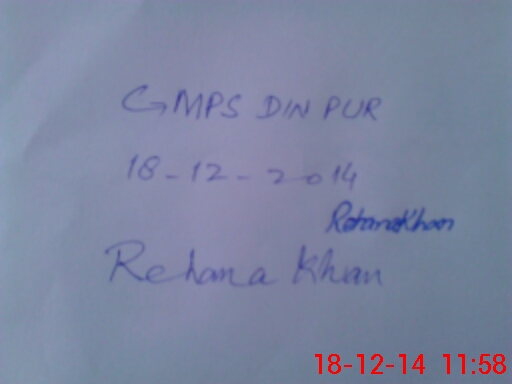 GMPS DIN PUR
18-12-2014
Rehana Khan
Rehana Khan
18-12-14 11:58